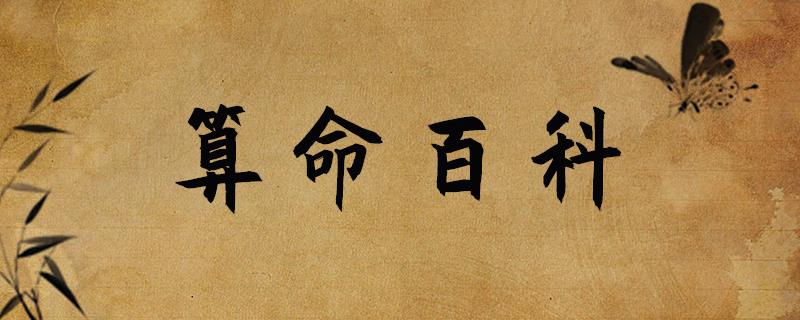 算命百科